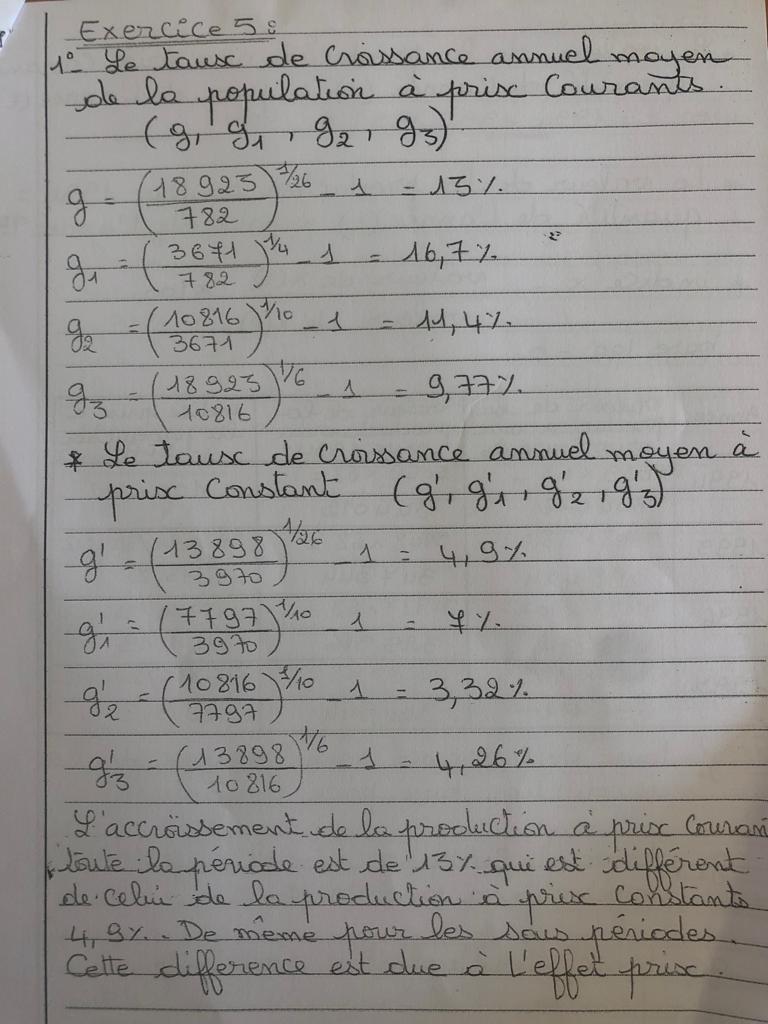 Exercice 5 :
1°- Le taux de Croissance annuel moyen
de la population à prix Courants.
(g, g1, g2, g3)
g = (18923/782)^1/26 - 1 = 13%.
g1 = (3671/782)^1/4 - 1 = 16,7%.
g2 = (10816/3671)^1/10 - 1 = 11,4%.
g3 = (18923/10816)^1/6 - 1 = 9,77%.
* Le taux de croissance annuel moyen à
prix Constant (g', g'1, g'2, g'3)
g' = (13898/3970)^1/26 - 1 = 4,9%.
g'1 = (7797/3970)^1/10 - 1 = 7%.
g'2 = (10816/7797)^1/10 - 1 = 3,32%.
g'3 = (13898/10816)^1/6 - 1 = 4,26%
L'accroîssement de la production à prix Couran
toute la période est de 13% qui est différent
de celui de la production à prix Constants
4,9%. De même pour les sous périodes.
Cette difference est due à L'effet prix.